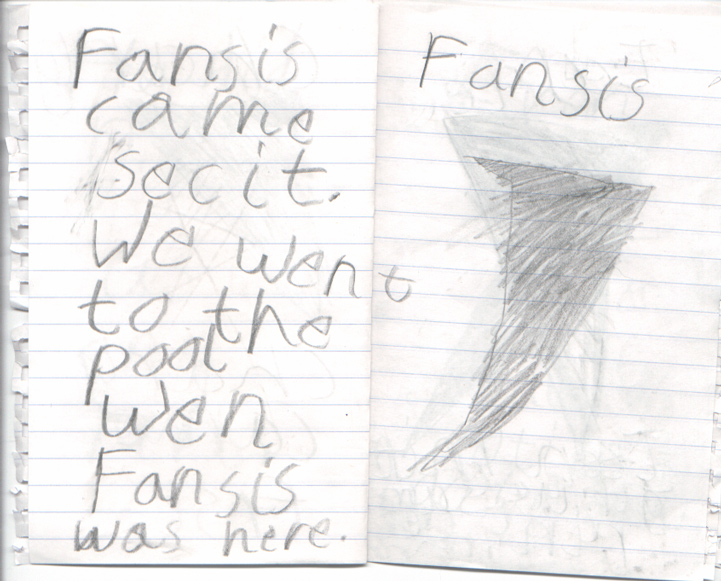 Fansis
came
secit.
We went
to the
pool
wen
Fansis
was here.
Fansis